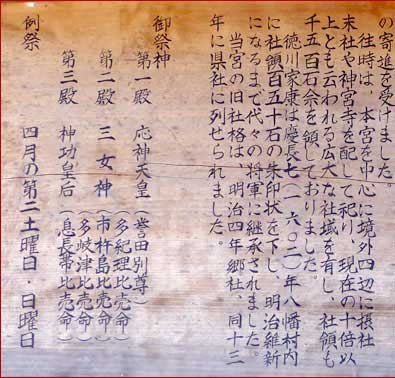 の寄進を受けました。
往時は、本宮を中心に境外四辺に摂社
末社や神宮寺を配して祀り、現在の十倍以
上とも云われる広大な社域を有し、社領も
千五百石余を領しておりました。
徳川家康は慶長七(一六〇二)年八幡村内
に社領百五十石の朱印状を下し、明治維新
になるまで代々の将軍に継承されました。
当宮の旧社格は、明治四年郷社、同十三
年に県社に列せられました。
御祭神
第一殿 応神天皇(誉田別尊)
第二殿 三女神(多紀理比売命)
(市杵島比売命)
(多岐津比売命)
第三殿 神功皇后(息長帯比売命)
例祭 四月の第二土曜日・日曜日